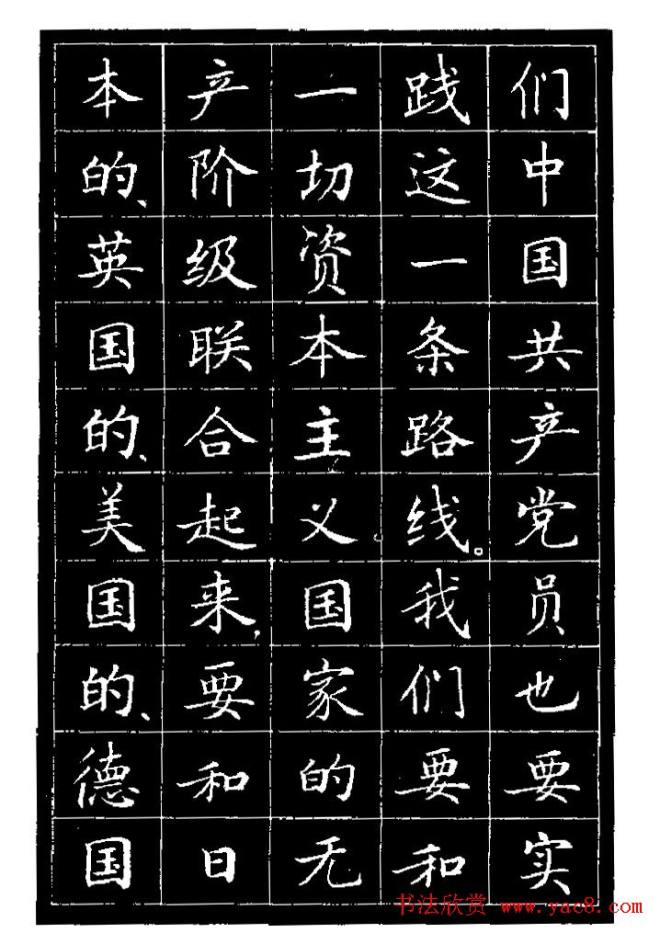 们中国共产党员也要实
践这一条路线。我们要和
一切资本主义国家的无
产阶级联合起来,要和日
本的、英国的、美国的、德国
书法欣赏 www.yac8.com